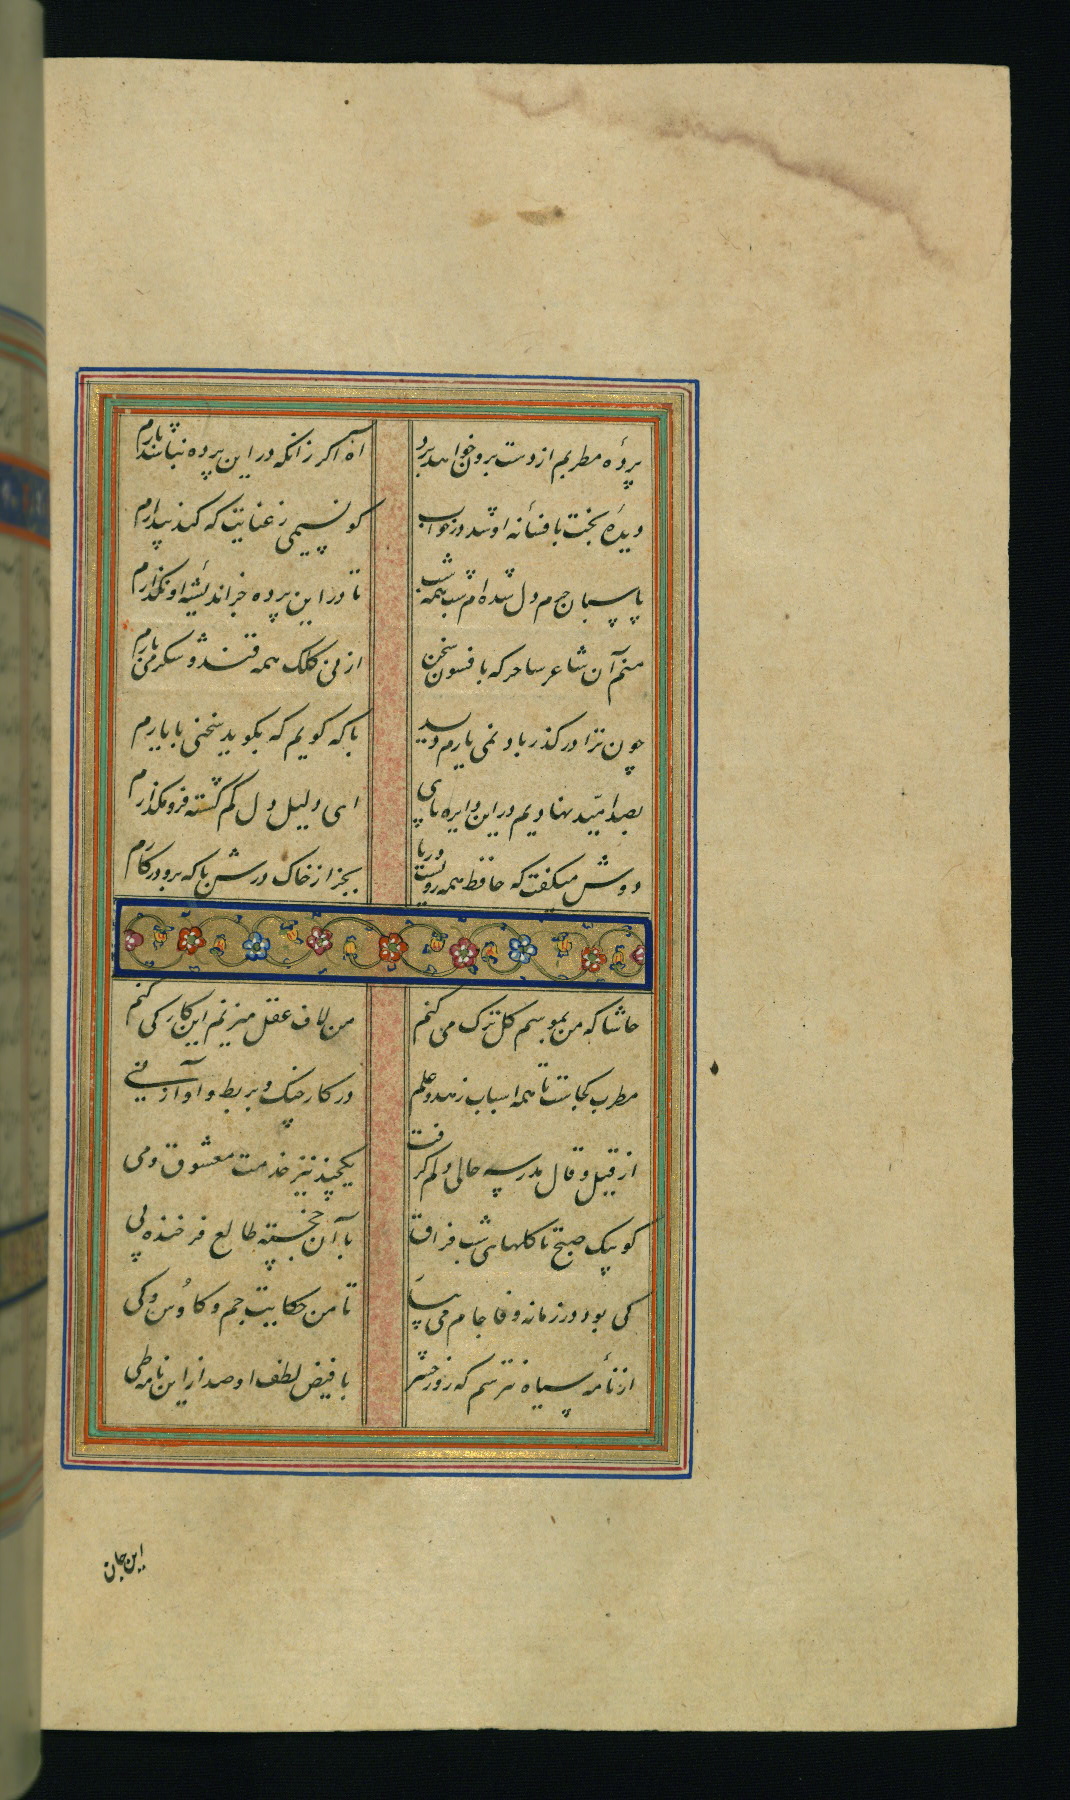 پردهٔ مطربم از دست برون خواهد برد آه اکر زانکه در این پرده نباشد بارم
دیدهٔ بخت بافسانهٔ او شد در خواب کو نسیمی ز عنایت که کند بیدارم
پاسبان حرم دل شده‌ام شب همه شب تا در این پرده جز اندیشهٔ او نکذارم
منم آن شاعر ساحر که بافسون سخن از نی کلک همه قند و شکر می بارم
چون ترا در کذر باد نمی یارم دید با که کویم که بکوید سخنی با یارم
بصد امید نهادیم در این دایره پای ای دلیل دل کم کشته فرو مکذارم
دوش میکفت که حافظ همه رویست و ریا بجز از خاک درش با که بود در کارم
حاشا که من بموسم کل ترک می کنم من لاف عقل میزنم این کار کی کنم
مطرب کجاست تا همه اسباب زهد و علم در کار چنک و بربط و آواز نی
از قیل و قال مدرسه حالی دلم کرفت یکچند نیز خدمت معشوق و می
کو پیک صبح تا کلهای شب فراق با آن خجسته طالع فرخنده پی
کی بود در زمانه وفا جام می بیا تا من حکایت جم و کاوس و کی
از نامهٔ سیاه نترسم که روز حشر با فیض لطف او صد از این نامه طی
این جان